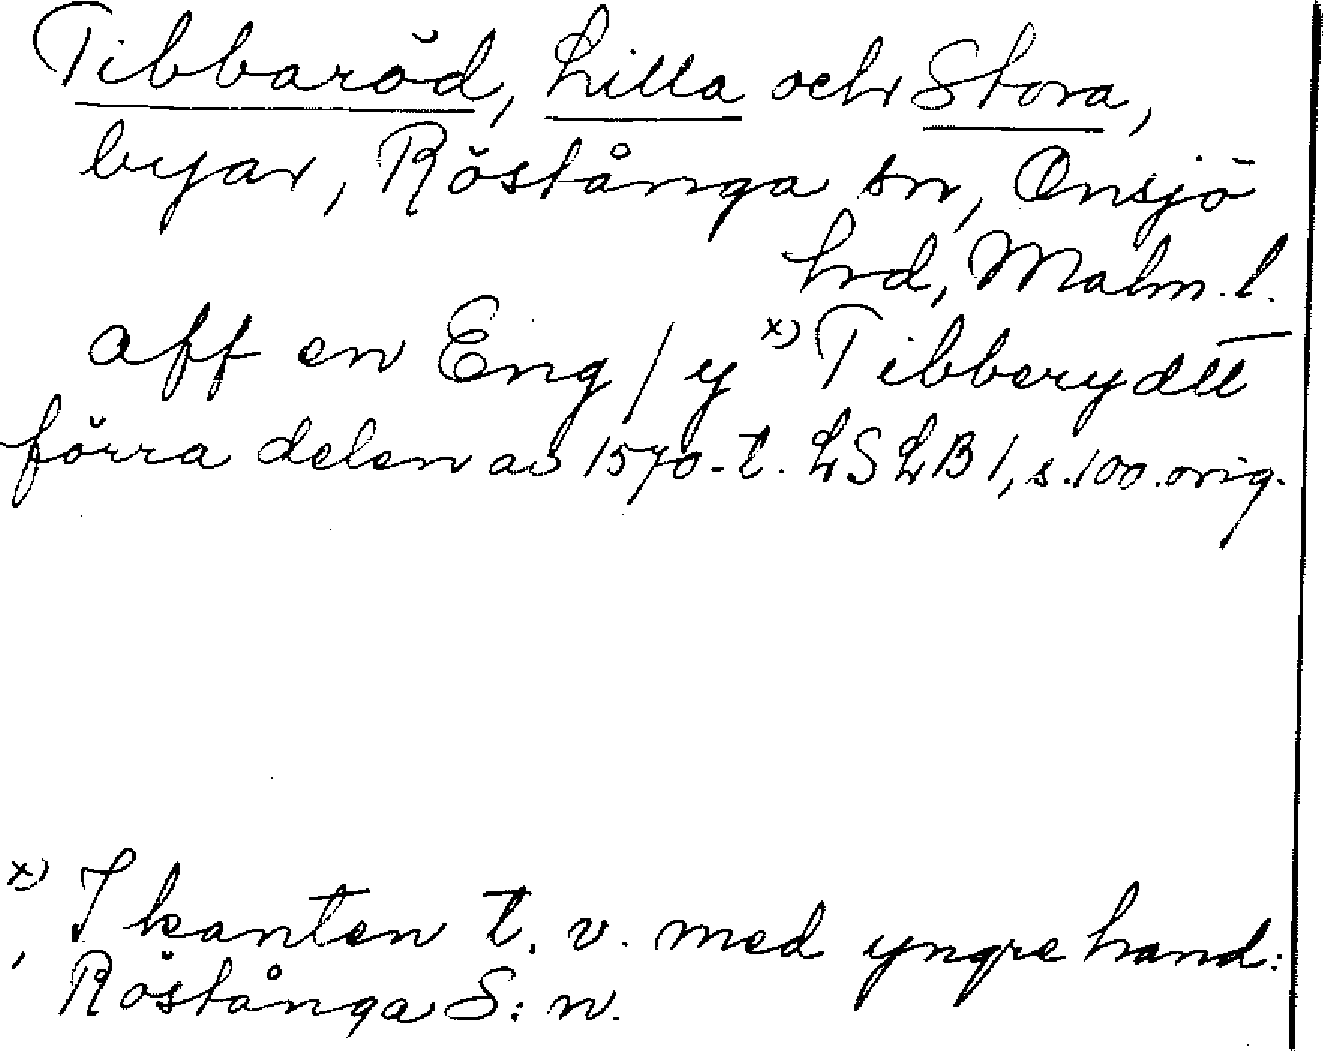 Tibbaröd, Lilla och Stora,
byar, Röstånga sn, Onsjö
hrd, Malm. l.
aff en Eng / y x) Tibberydtt
förra delen av 1570-t. LSLB 1, s. 100. orig.
x) I kanten t. v. med yngre hand:
Röstånga S: n.